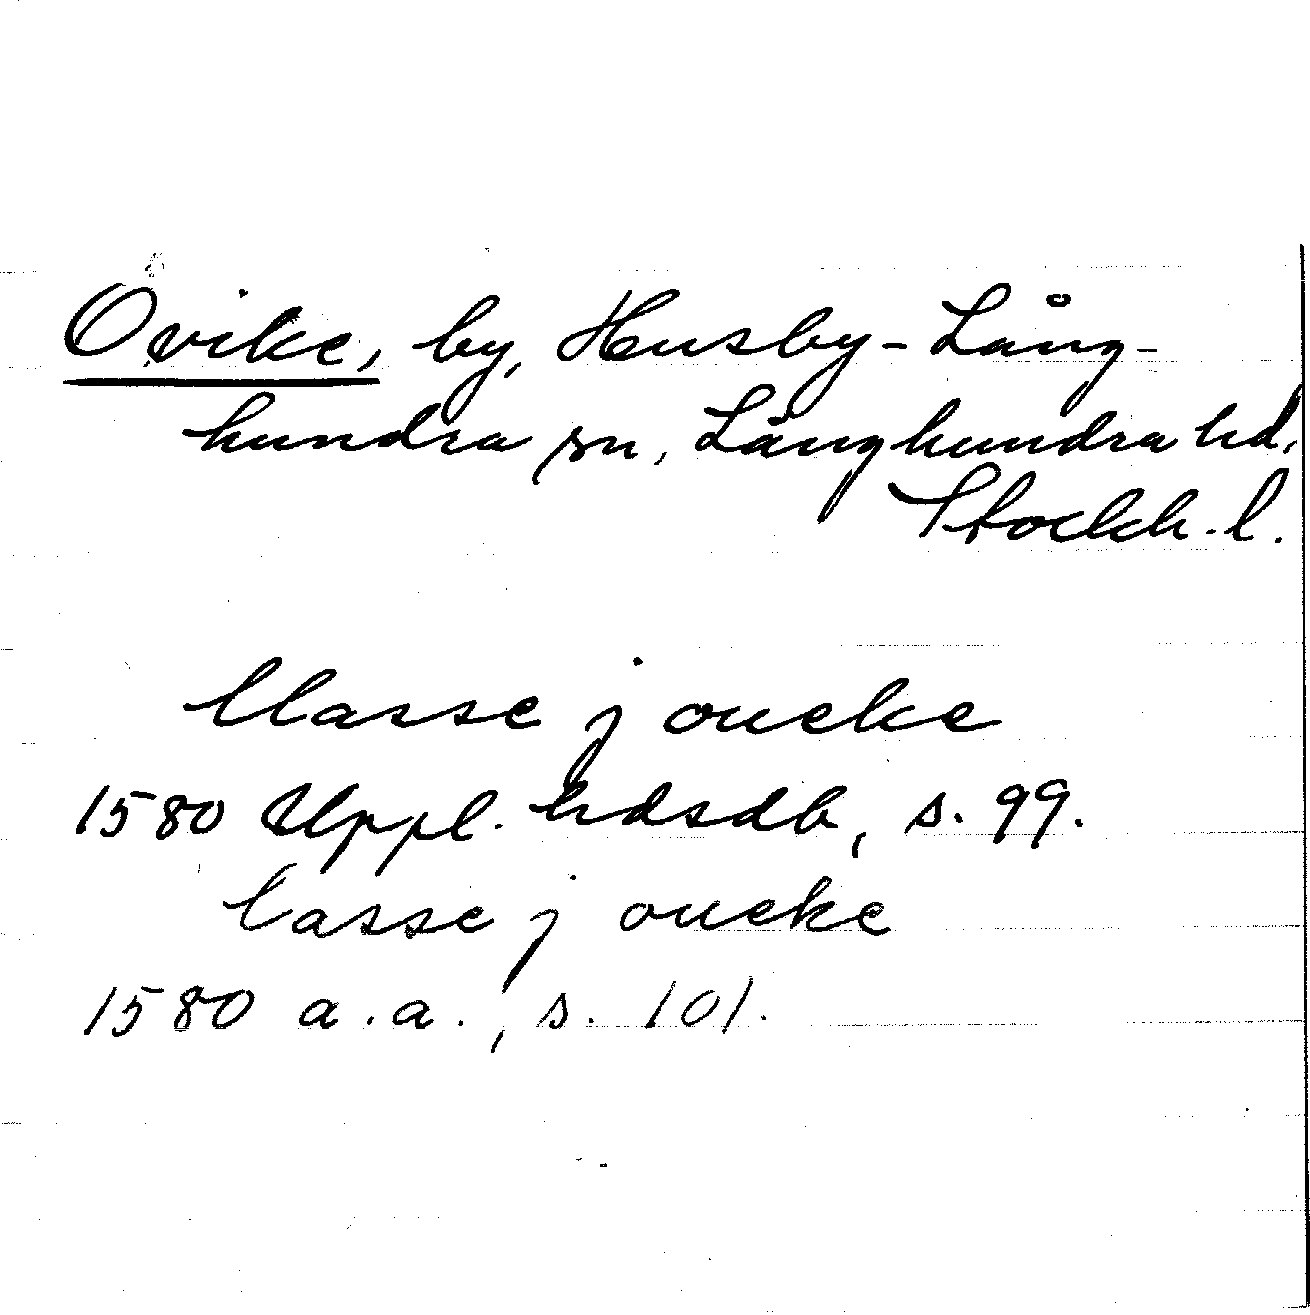 Ovike, by, Husby-Lång-
hundra sn, Långhundra hd,
Stockh. l.
Classe j oueke
1580 Uppl. hdsdb, s. 99.
lasse j oueke
1580 a.a., s. 101.